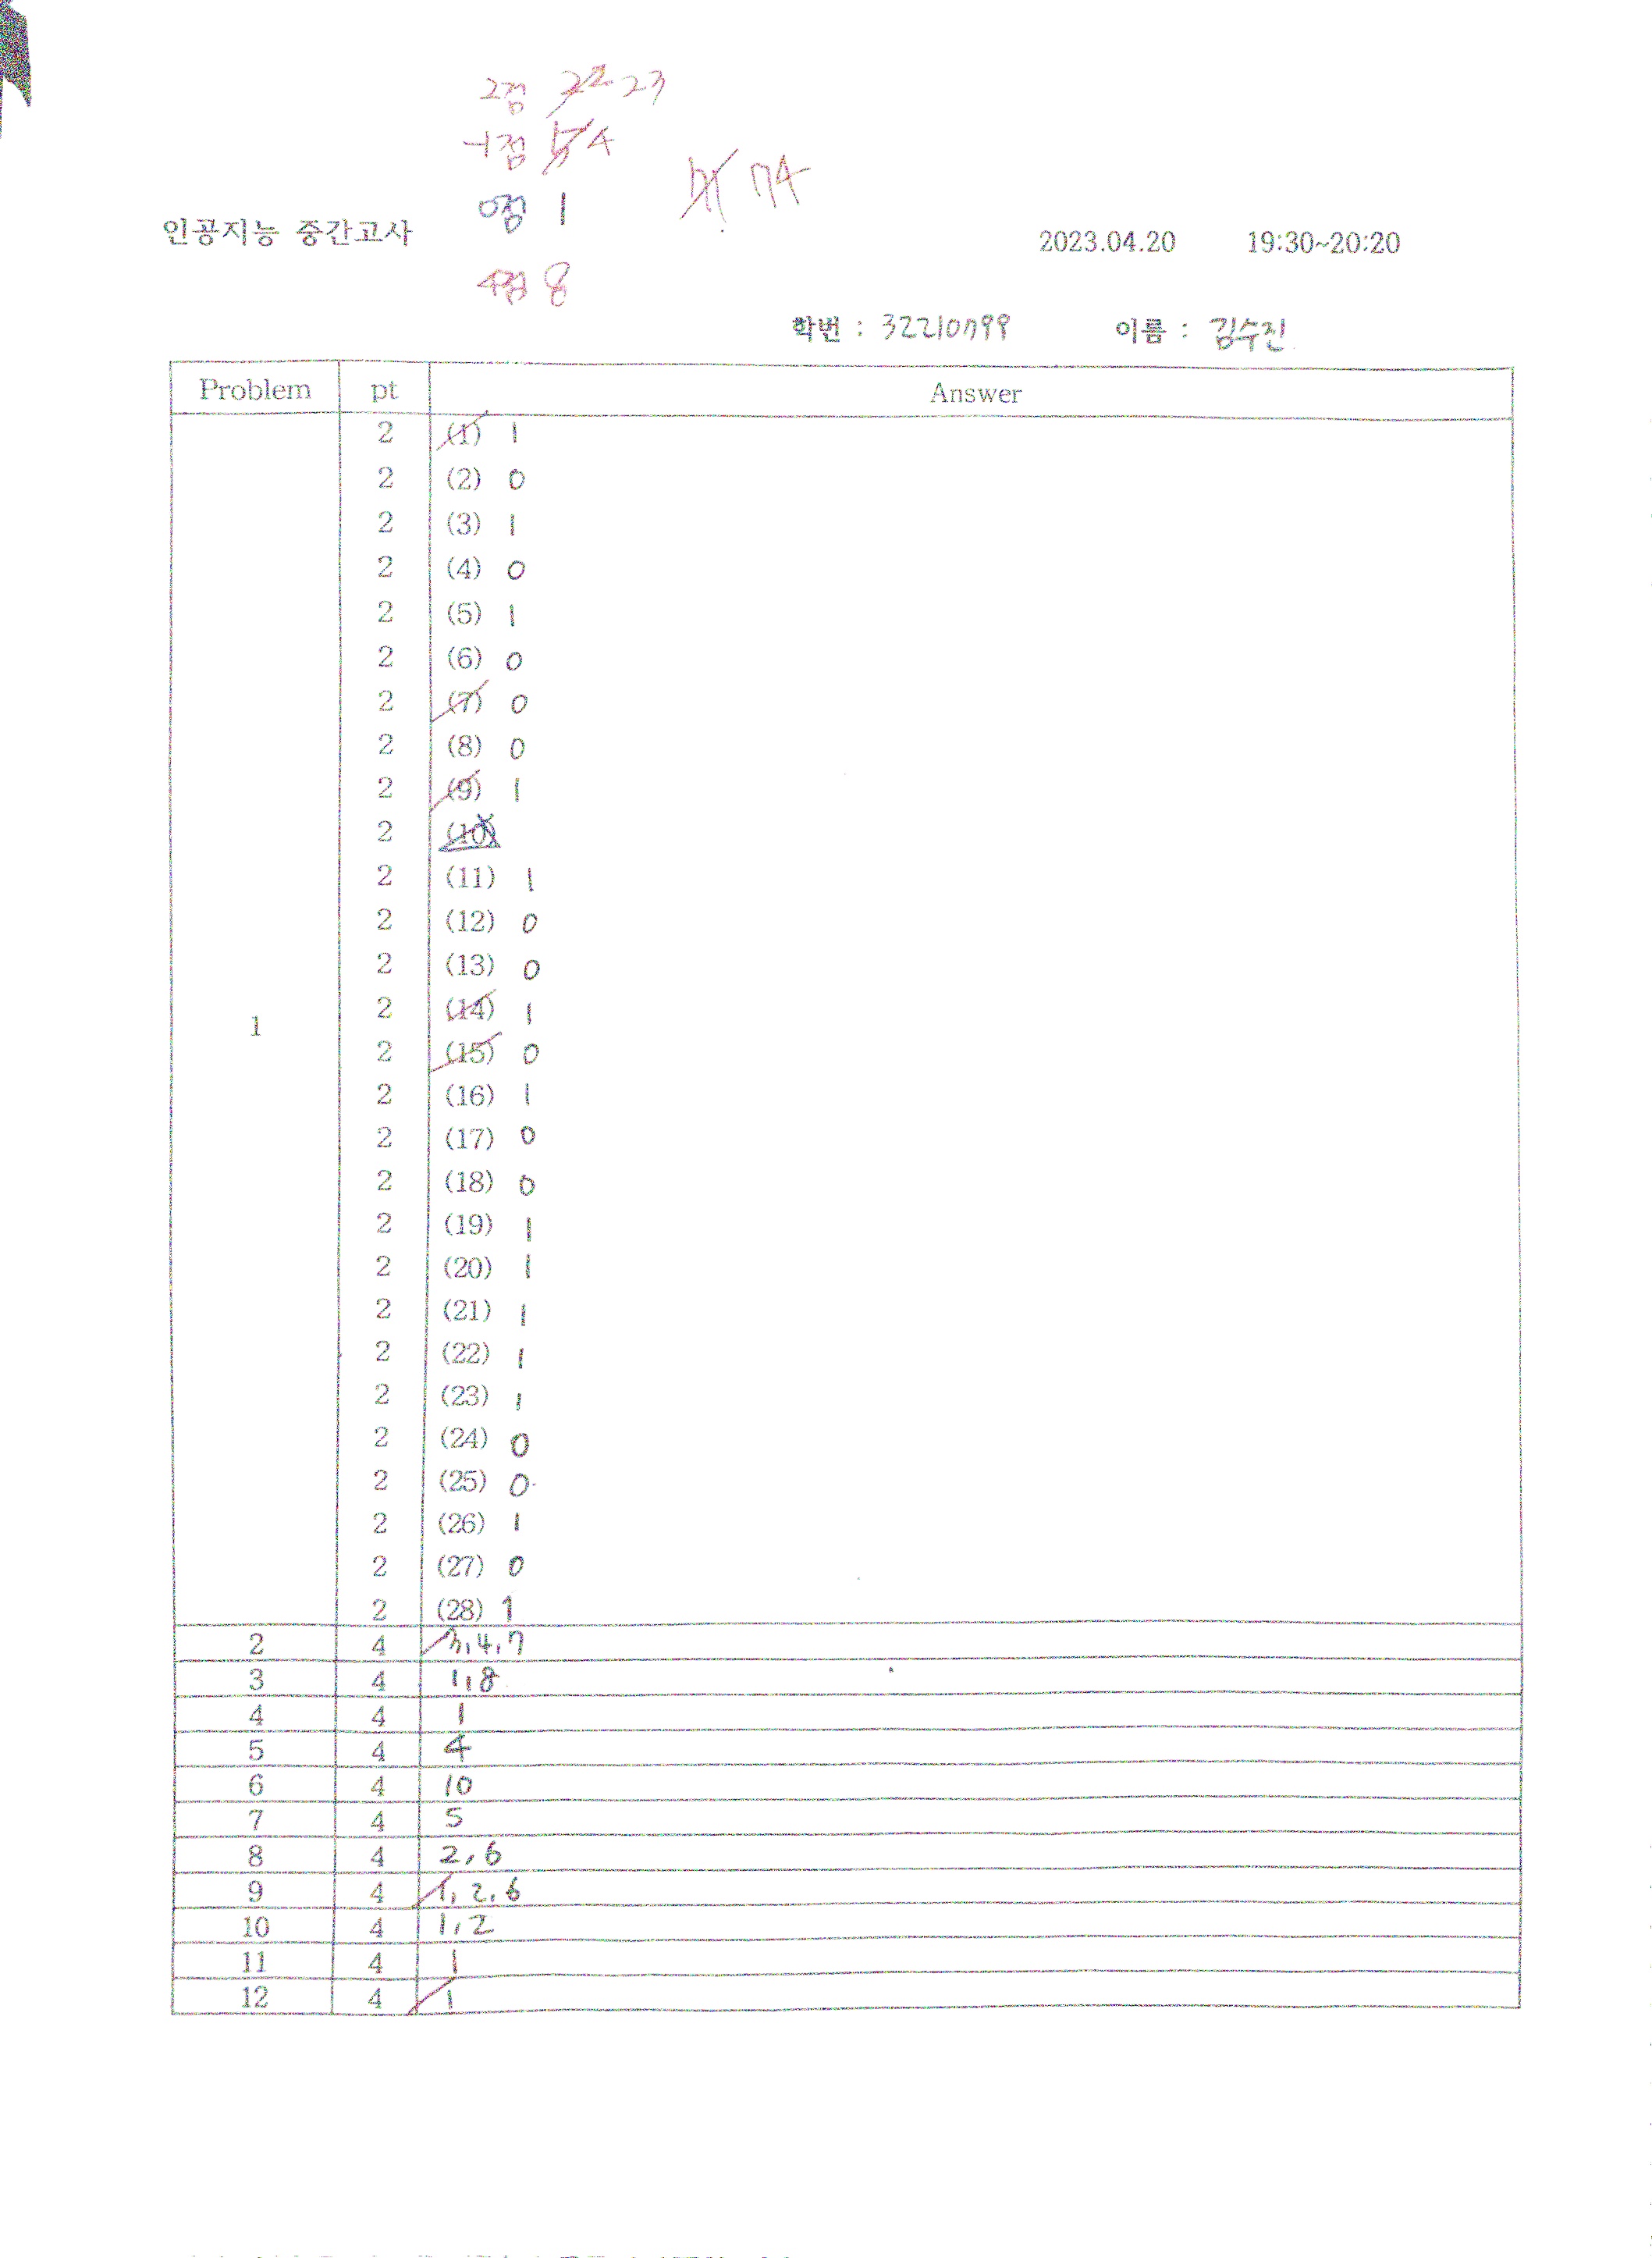 2점 22 23
-1점 5 4
0점 1
71 74
인공지능 중간고사
2023.04.20 19:30~20:20
4점 8
학번 : 32210799 이름 : 김수진
Problem pt Answer
2 (1) 1
2 (2) 0
2 (3) 1
2 (4) 0
2 (5) 1
2 (6) 0
2 (7) 0
2 (8) 0
2 (9) 1
2 (10)
2 (11) 1
2 (12) 0
2 (13) 0
2 (14) 1
1
2 (15) 0
2 (16) 1
2 (17) 0
2 (18) 0
2 (19) 1
2 (20) 1
2 (21) 1
2 (22) 1
2 (23) 1
2 (24) 0
2 (25) 0
2 (26) 1
2 (27) 0
2 (28) 1
2 4 3,4,7
3 4 1,8
4 4 1
5 4 4
6 4 10
7 4 5
8 4 2,6
9 4 1,2,6
10 4 1,2
11 4 1
12 4 1